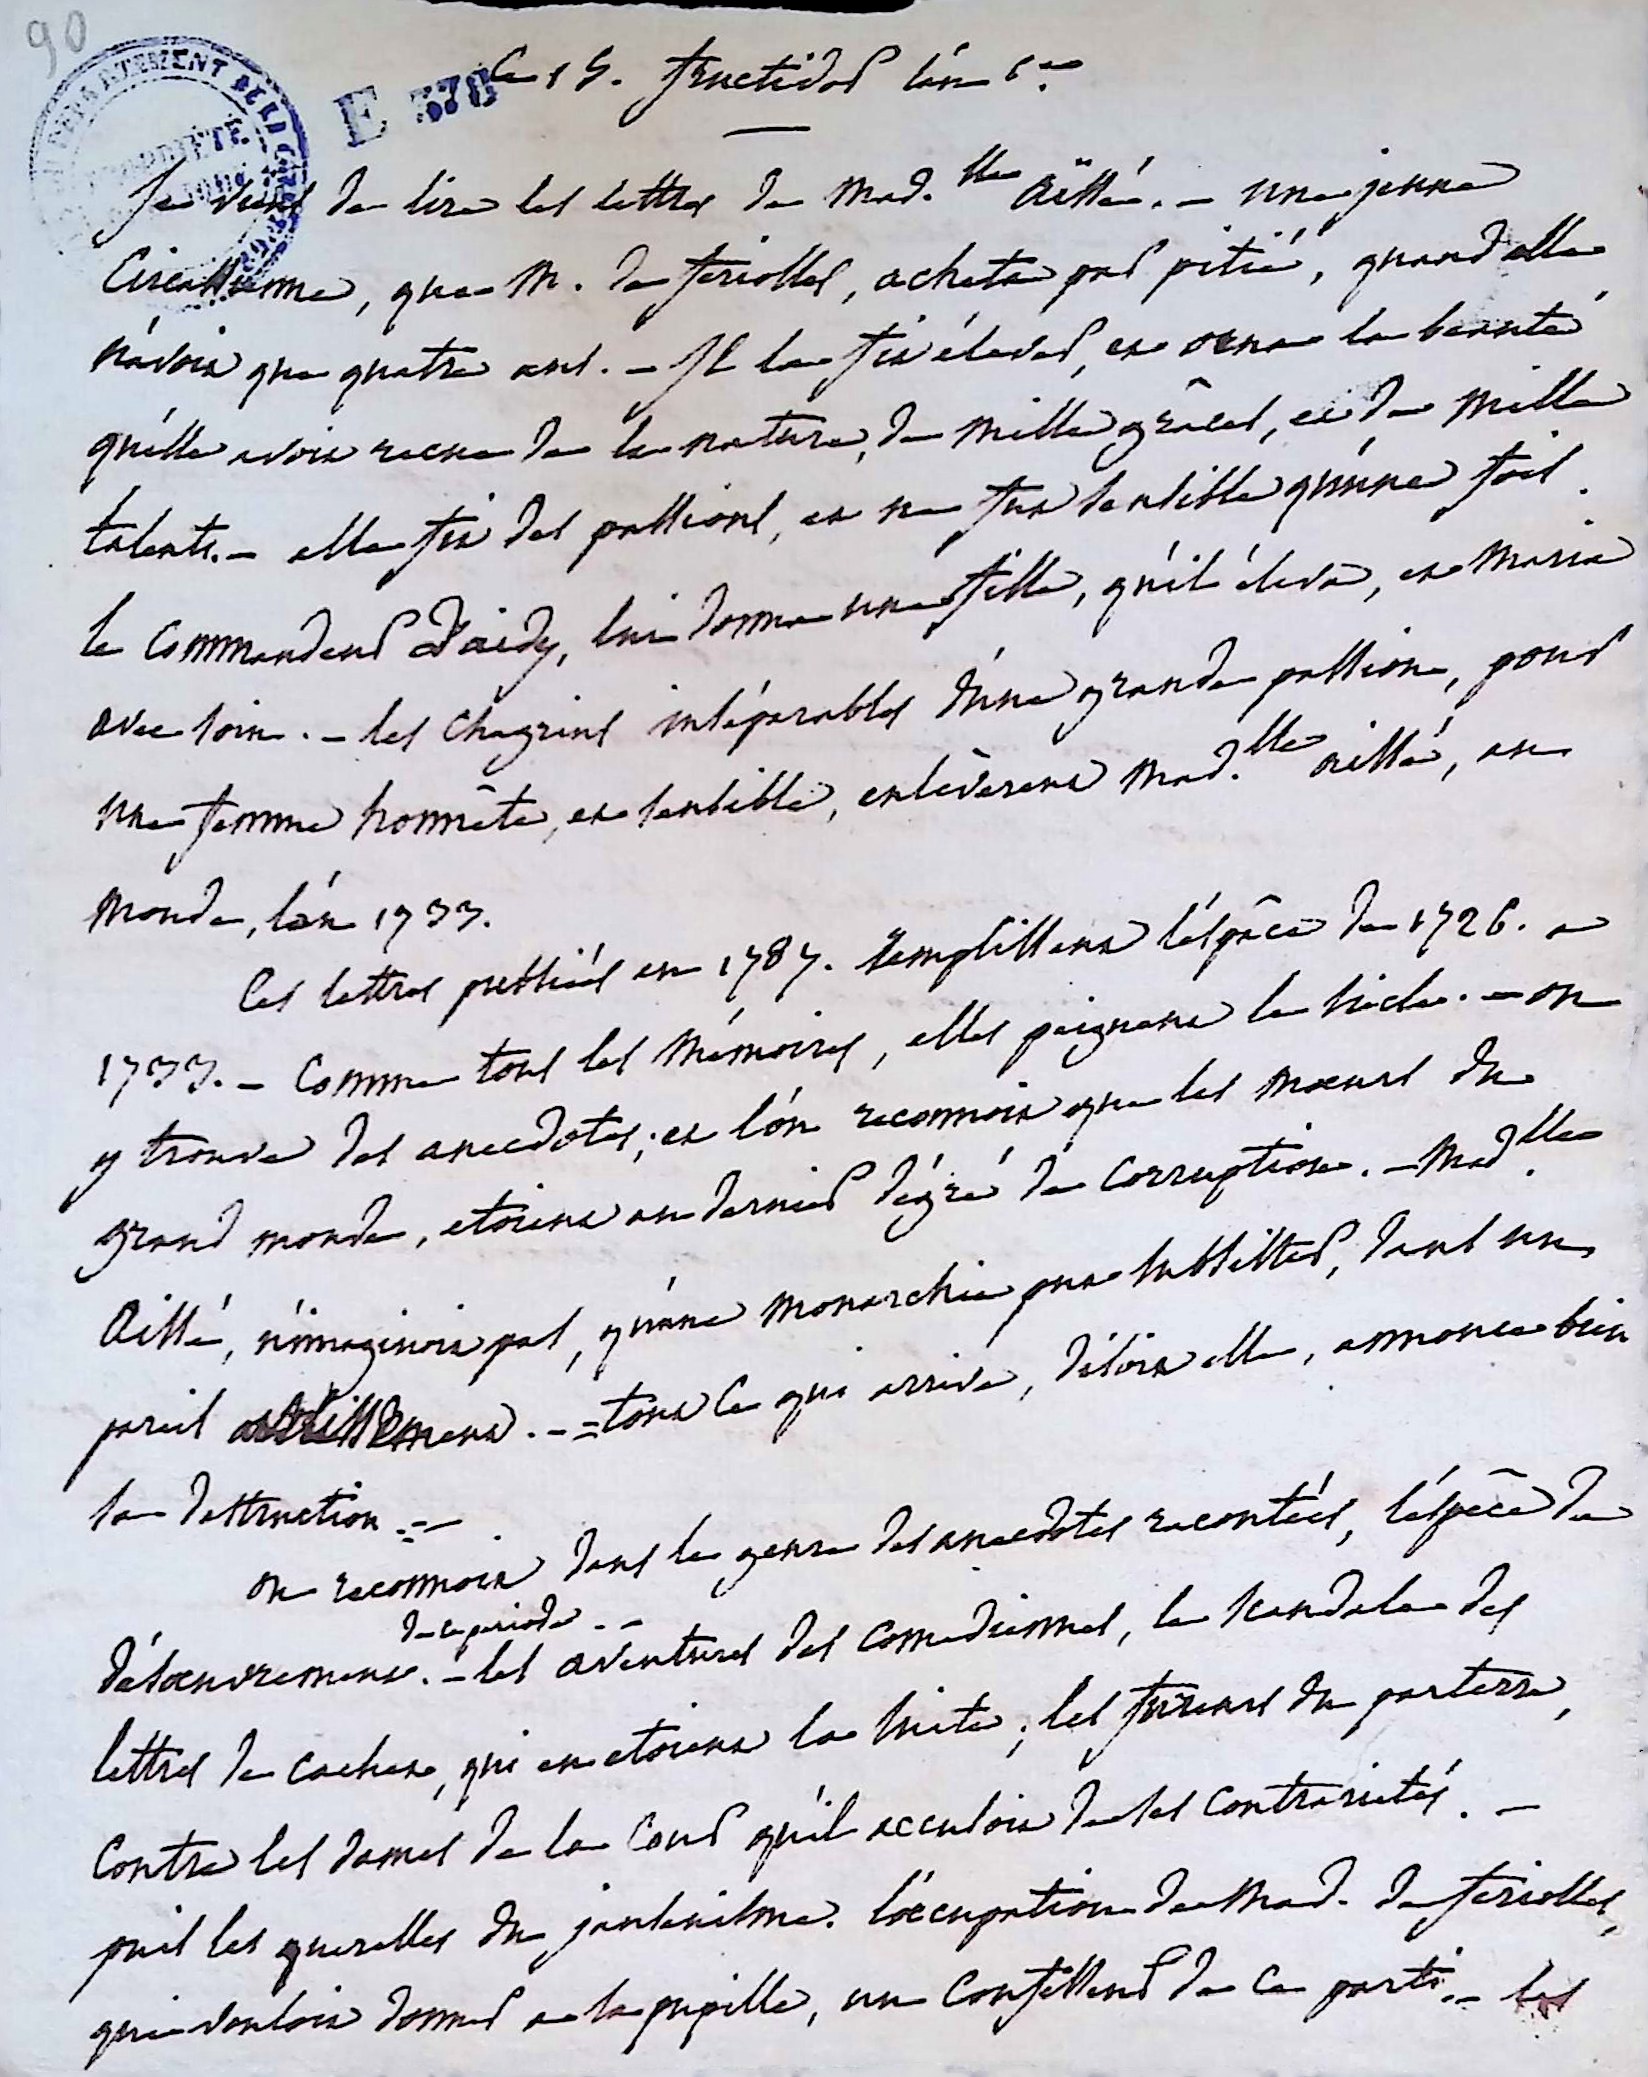 90
E 378
Ce 15. fructidor l'an 6e.
Je viens de lire les lettres de Mad.lle Aïssé. – une jeune
Circassienne, que M. de feriolles, acheta par pitié, quand elle
n'avoit que quatre ans. – Il la fit élever, et orna la beauté
qu'elle avoit recue de la nature, de mille grâces, et de mille
talents. – elle fit des passions, et ne fut sensible qu'une fois.
le Commandeur d'aidy, lui donna une fille, qu'il éleva, et maria
avec soin. – les chagrins inséparables d'une grande passion, pour
une femme honnête, et sensible, enlèverent Mad.lle aissé, au
monde, l'an 1733.
Ces lettres publiées en 1787. remplissent l'éspâce de 1726. a
1733. – Comme tous les mémoires, elles peignent le siècle. – on
y trouve des anecdotes; et l'on reconnoit que les mœurs du
grand monde, etoient au dernier dégré de corruption. – Mad.lle
Aissé, n'imaginoit pas, qu'une monarchie put subsister, dans un
pareil avilissement. – = tout ce qui arrive, disoit elle, annonce bien
sa destruction. = –
on reconnoit dans le genre des anecdotes racontées, l'éspèce de
de ce periode. –
désœuvrement. – les aventures des comediennes, le scandale des
lettres de cachet, qui en etoient la suite; les fureurs du parterre,
contre les dames de la Cour qu'il accusoit de ses contrariétés. –
puis les querelles du jansénisme. l'occupation de Mad. de feriolles,
qui vouloit donner a sa pupille, un confesseur de ce parti. – les